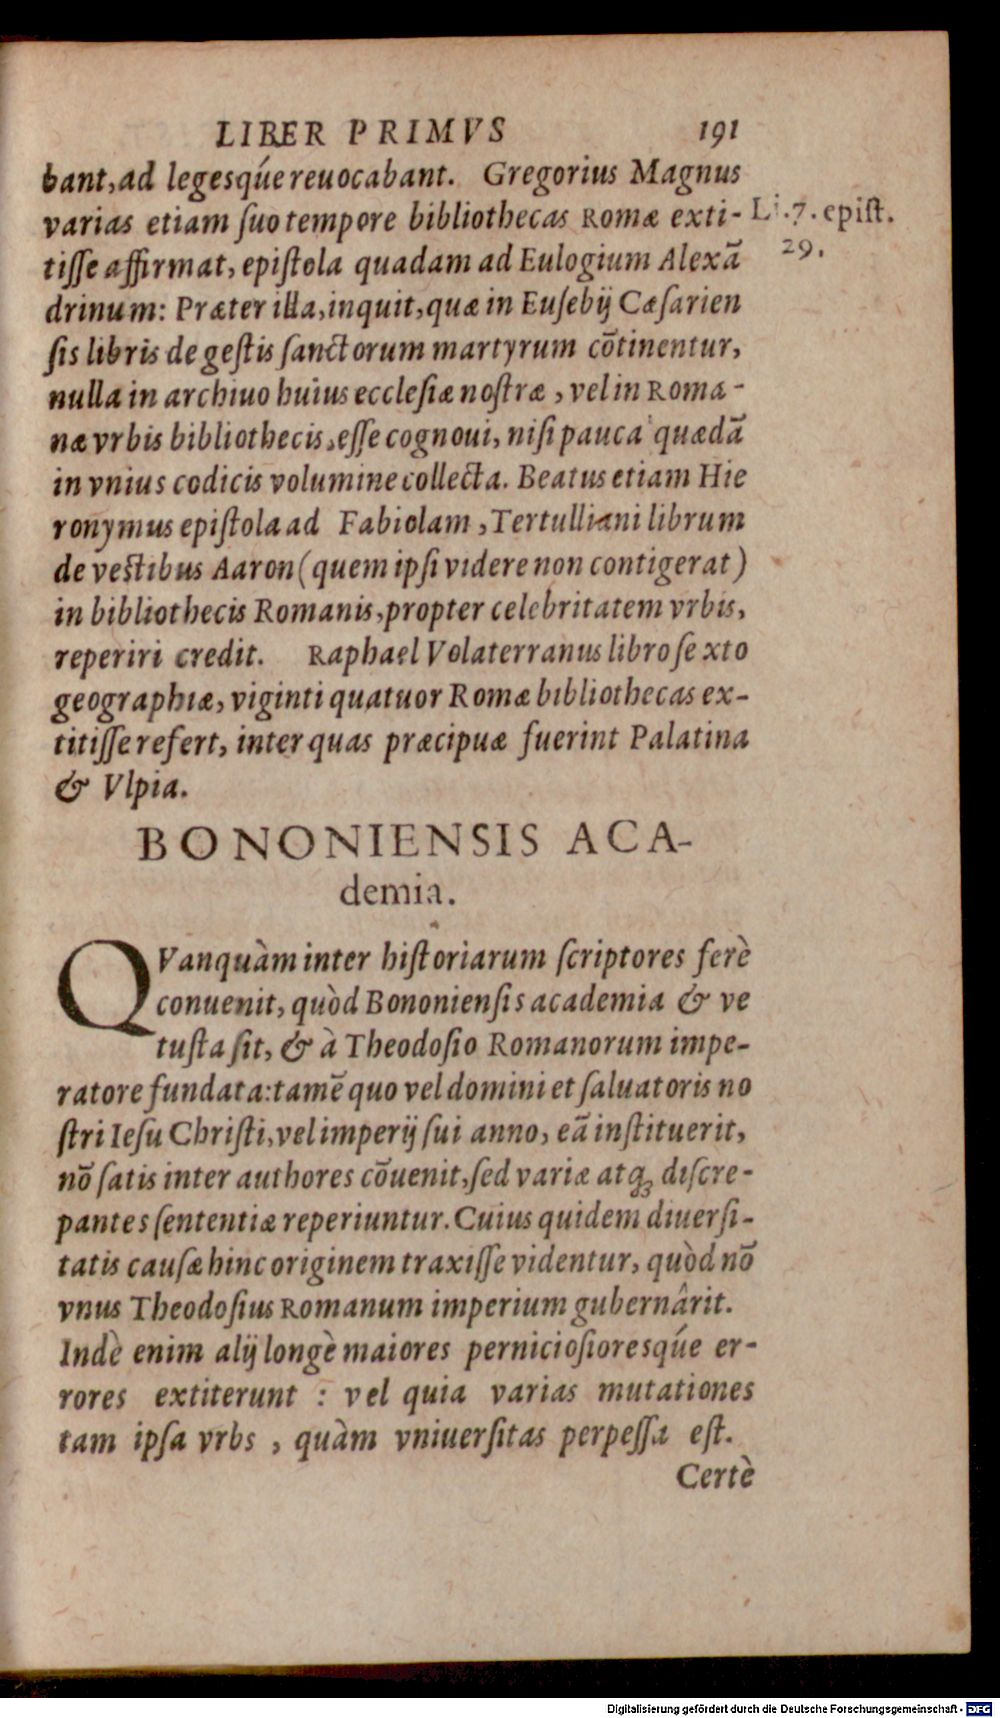 LIBER PRIMVS 191
bant, ad legesq́ue reuocabant. Gregorius Magnus
varias etiam ſuo tempore bibliothecas Romæ exti-
Li.7. epiſt.
29.
tiſſe affirmat, epiſtola quadam ad Eulogium Alexã
drinum: Præter illa, inquit, quæ in Euſebij Cæſarien
ſis libris de geſtis ſanctorum martyrum cõtinentur,
nulla in archiuo huius eccleſiæ noſtræ, vel in Roma-
næ vrbis bibliothecis, eſſe cognoui, niſi pauca quædã
in vnius codicis volumine collecta. Beatus etiam Hie
ronymus epiſtola ad Fabiolam, Tertulliani librum
de veſtibus Aaron (quem ipſi videre non contigerat)
in bibliothecis Romanis, propter celebritatem vrbis,
reperiri credit. Raphael Volaterranus libro ſexto
geographiæ, viginti quatuor Romæ bibliothecas ex-
titiſſe refert, inter quas præcipuæ fuerint Palatina
& Vlpia.
BONONIENSIS ACA-
demia.
QVanquàm inter hiſtoriarum ſcriptores ferè
conuenit, quòd Bononienſis academia & ve
tuſta ſit, & à Theodoſio Romanorum impe-
ratore fundata: tamẽ quo vel domini et ſaluatoris no
ſtri Ieſu Chriſti, vel imperij ſui anno, eã inſtituerit,
nõ ſatis inter authores cõuenit, ſed variæ atq; diſcre-
pantes ſententiæ reperiuntur. Cuius quidem diuerſi-
tatis cauſæ hinc originem traxiſſe videntur, quòd nõ
vnus Theodoſius Romanum imperium gubernârit.
Indè enim alij longè maiores pernicioſioresq́ue er-
rores extiterunt : vel quia varias mutationes
tam ipſa vrbs, quàm vniuerſitas perpeſſa eſt.
Certè
Digitalisierung gefördert durch die Deutsche Forschungsgemeinschaft - DFG